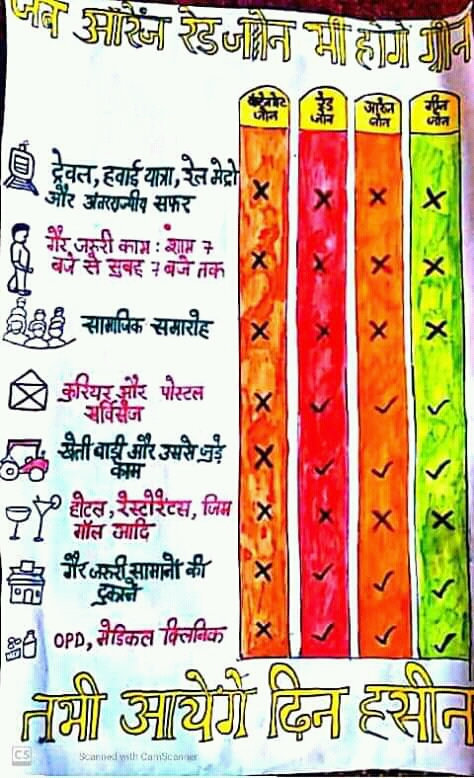 जब ऑरेंज रेड जोन भी होंगे ग्रीन
कंटेनमेंट जोन
रेड जोन
ऑरेंज जोन
ग्रीन जोन
ट्रेवल, हवाई यात्रा, रेल मेट्रो
और अंतरराज्यीय सफर
गैर जरूरी काम: शाम 7
बजे से सुबह 7 बजे तक
सामाजिक समारोह
कुरियर और पोस्टल
सर्विसेज
खेती बाड़ी और उससे जुड़े
काम
होटल, रेस्टोरेंटस, जिम
मॉल आदि
गैर जरूरी सामानों की
दुकाने
OPD, मेडिकल क्लिनिक
तभी आयेंगे दिन हसीन
CS Scanned with CamScanner